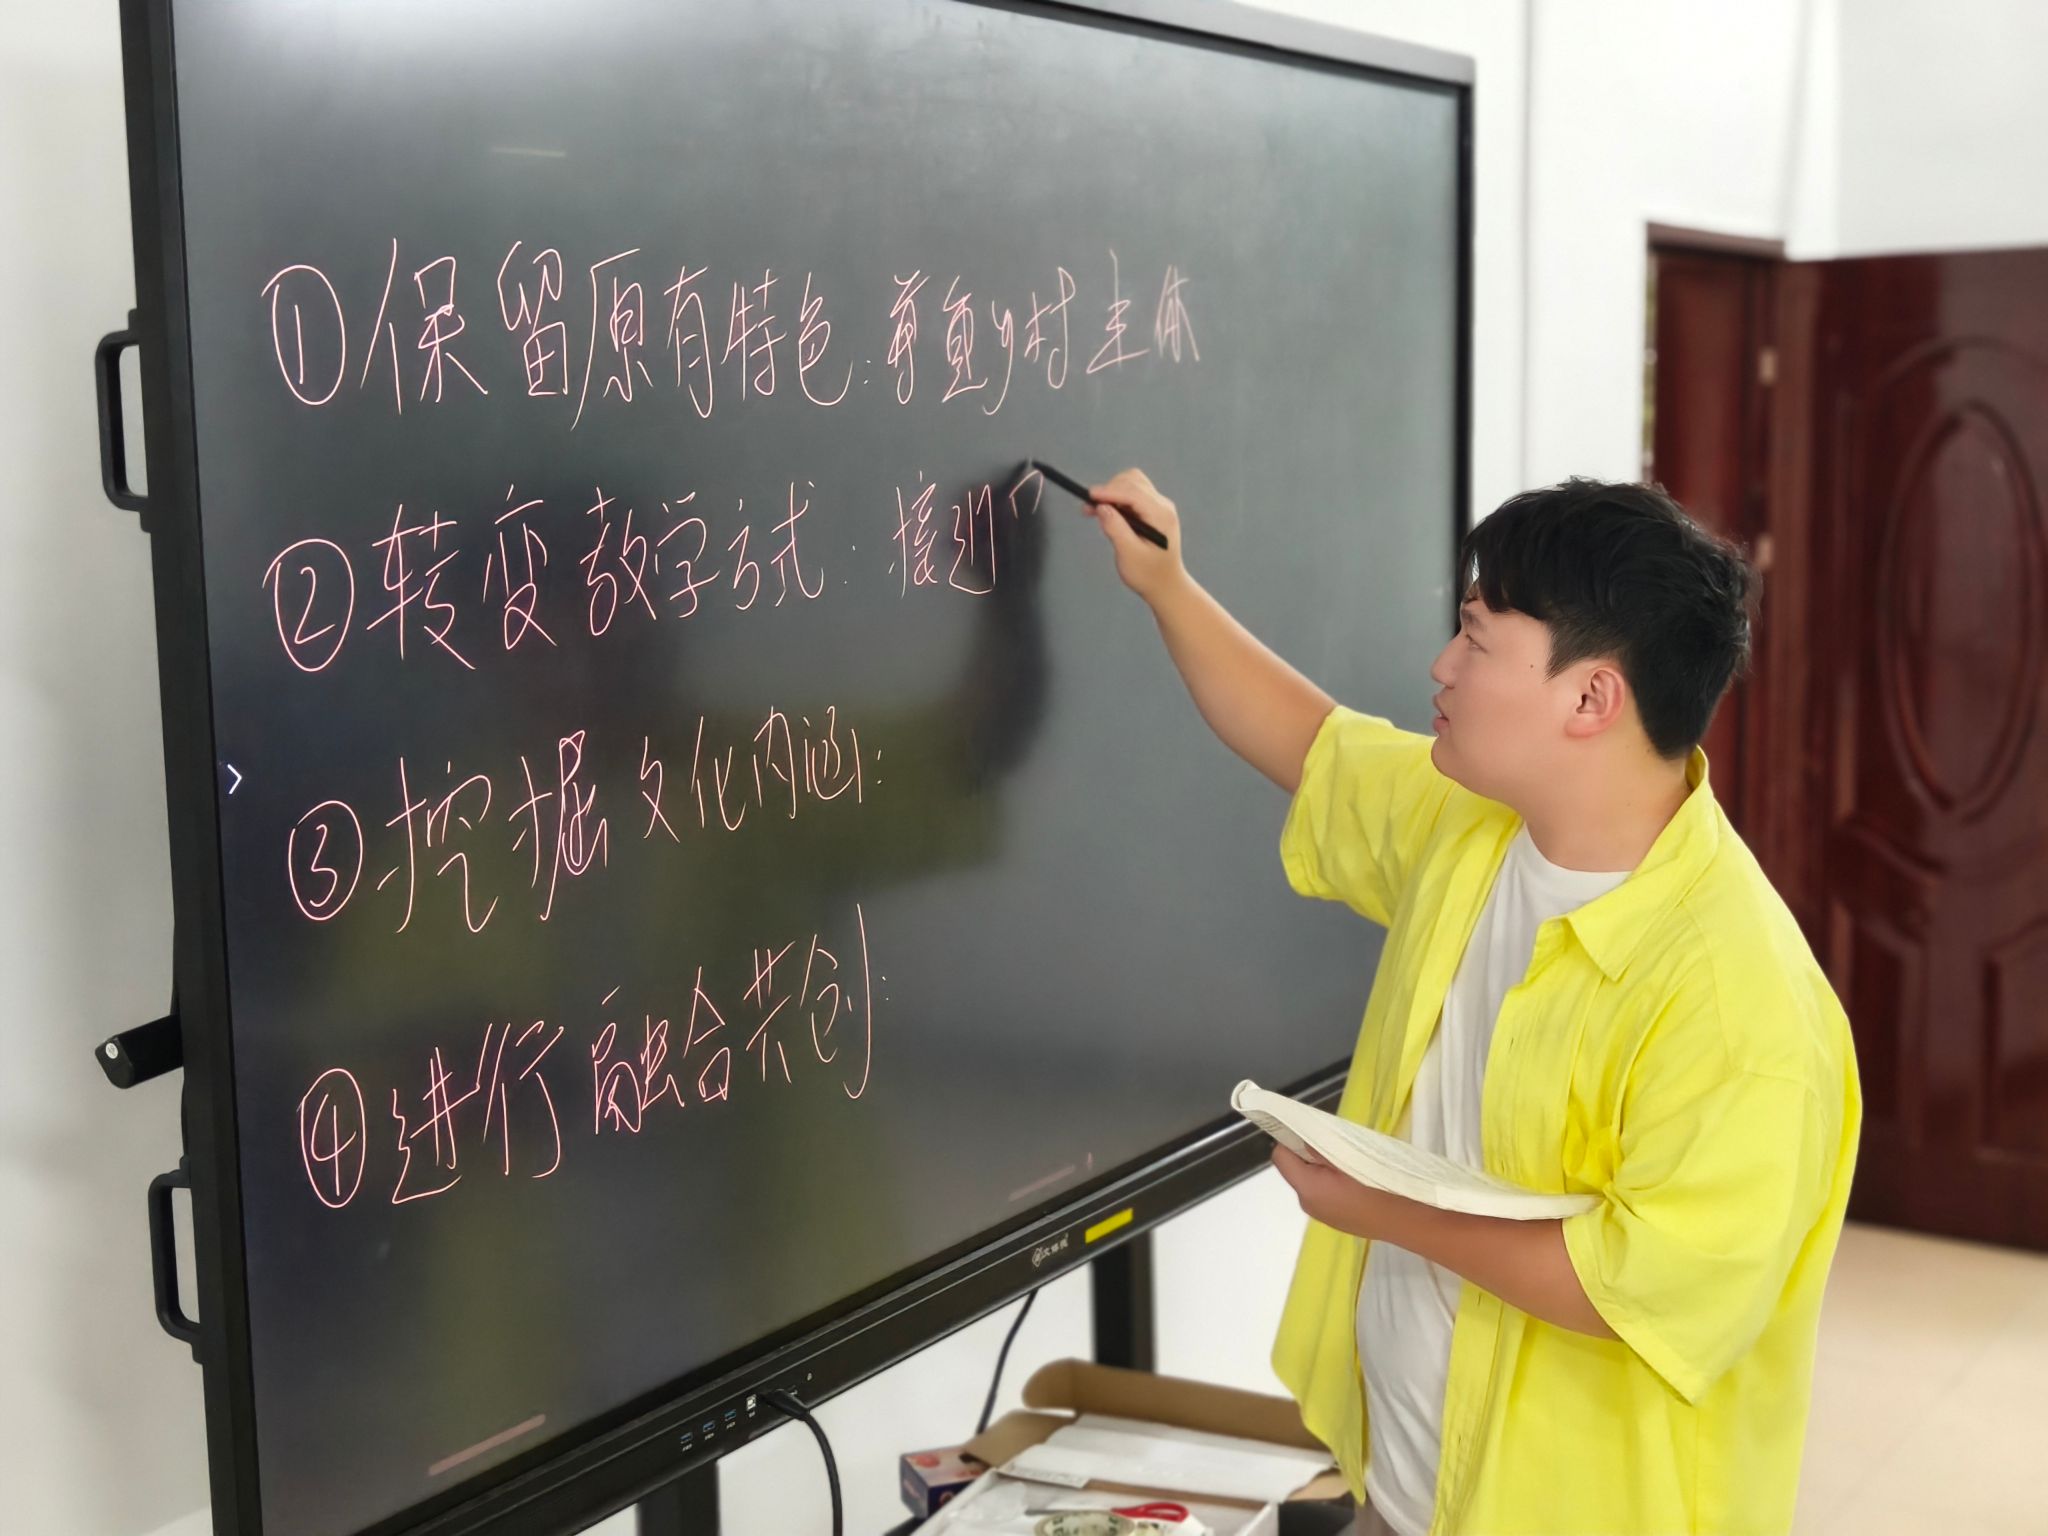 ①保留原有特色:尊重乡村主体
②转变教学方式:接近
③挖掘文化内涵:
④进行融合共创: